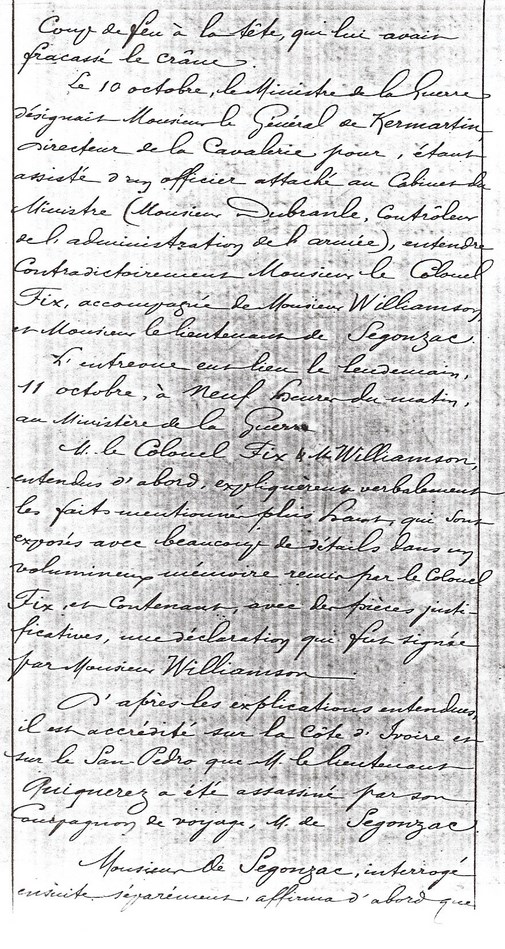 Coup de feu à la tête, qui lui avait
fracassé le crâne.
Le 10 octobre, le Ministre de la Guerre
désignait Monsieur le Général de Kermartin,
Directeur de la Cavalerie pour, étant
assisté d'un officier attaché au Cabinet du
Ministre (Monsieur Dubranle, Contrôleur
de l'administration de l'armée), entendre
Contradictoirement Monsieur le Colonel
Fix, accompagné de Monsieur Williamson,
et Monsieur le lieutenant de Segonzac.
L'entrevue eut lieu le lendemain,
11 octobre, à neuf heures du matin,
au Ministère de la Guerre
M. le Colonel Fix & M. Williamson,
entendus d'abord, expliquèrent verbalement
les faits mentionnés plus haut, qui sont
exposés avec beaucoup de détails dans un
volumineux mémoire remis par le Colonel
Fix, et Contenant, avec des pièces justi-
ficatives, une déclaration qui fut signée
par Monsieur Williamson.
D'après les explications entendues,
il est accrédité sur la Côte d'Ivoire et
sur le San Pedro que M. le lieutenant
Quiquerez a été assassiné par son
Compagnon de voyage, M. de Segonzac.
Monsieur de Segonzac, interrogé
ensuite séparément, affirma d'abord que